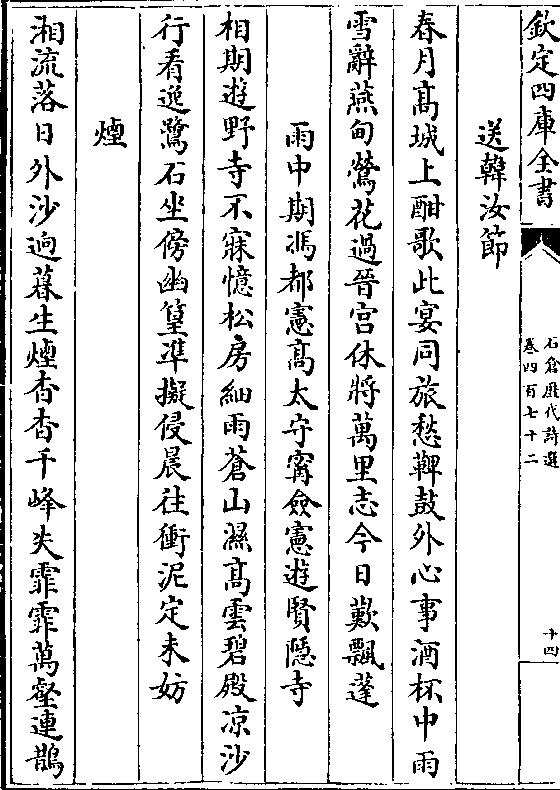 欽定四庫全書
石倉歷代詩選
卷四百七十二
十四
送韓汝節
春月高城上酣歌此宴同旅愁鞞鼓外心事酒杯中雨
雪辭燕甸鶯花過晉宫休將萬里志今日歎飄蓬
雨中期馮都憲高太守甯僉憲遊賢隱寺
相期遊野寺不寐憶松房細雨蒼山濕高雲碧殿凉沙
行看逸鷺石坐傍幽篁凖擬侵晨往衝泥定未妨
煙
湘流落日外沙逈暮生煙杳杳千峰失霏霏萬壑連鵲